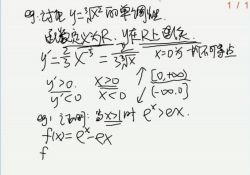 1 / 1
eg: 讨论 y=³√x² 的单调性
函数定义为R. y在R上连续.
y'=2/3 x^(-1/3) = 2/(3³√x) x=0为一个不可导点
y'>0. x>0 ↗ [0,+∞)
y'<0 x<0 ↘ (-∞,0]
eg: 证明: 当x>1时 e^x>ex.
f(x)=e^x-ex
f